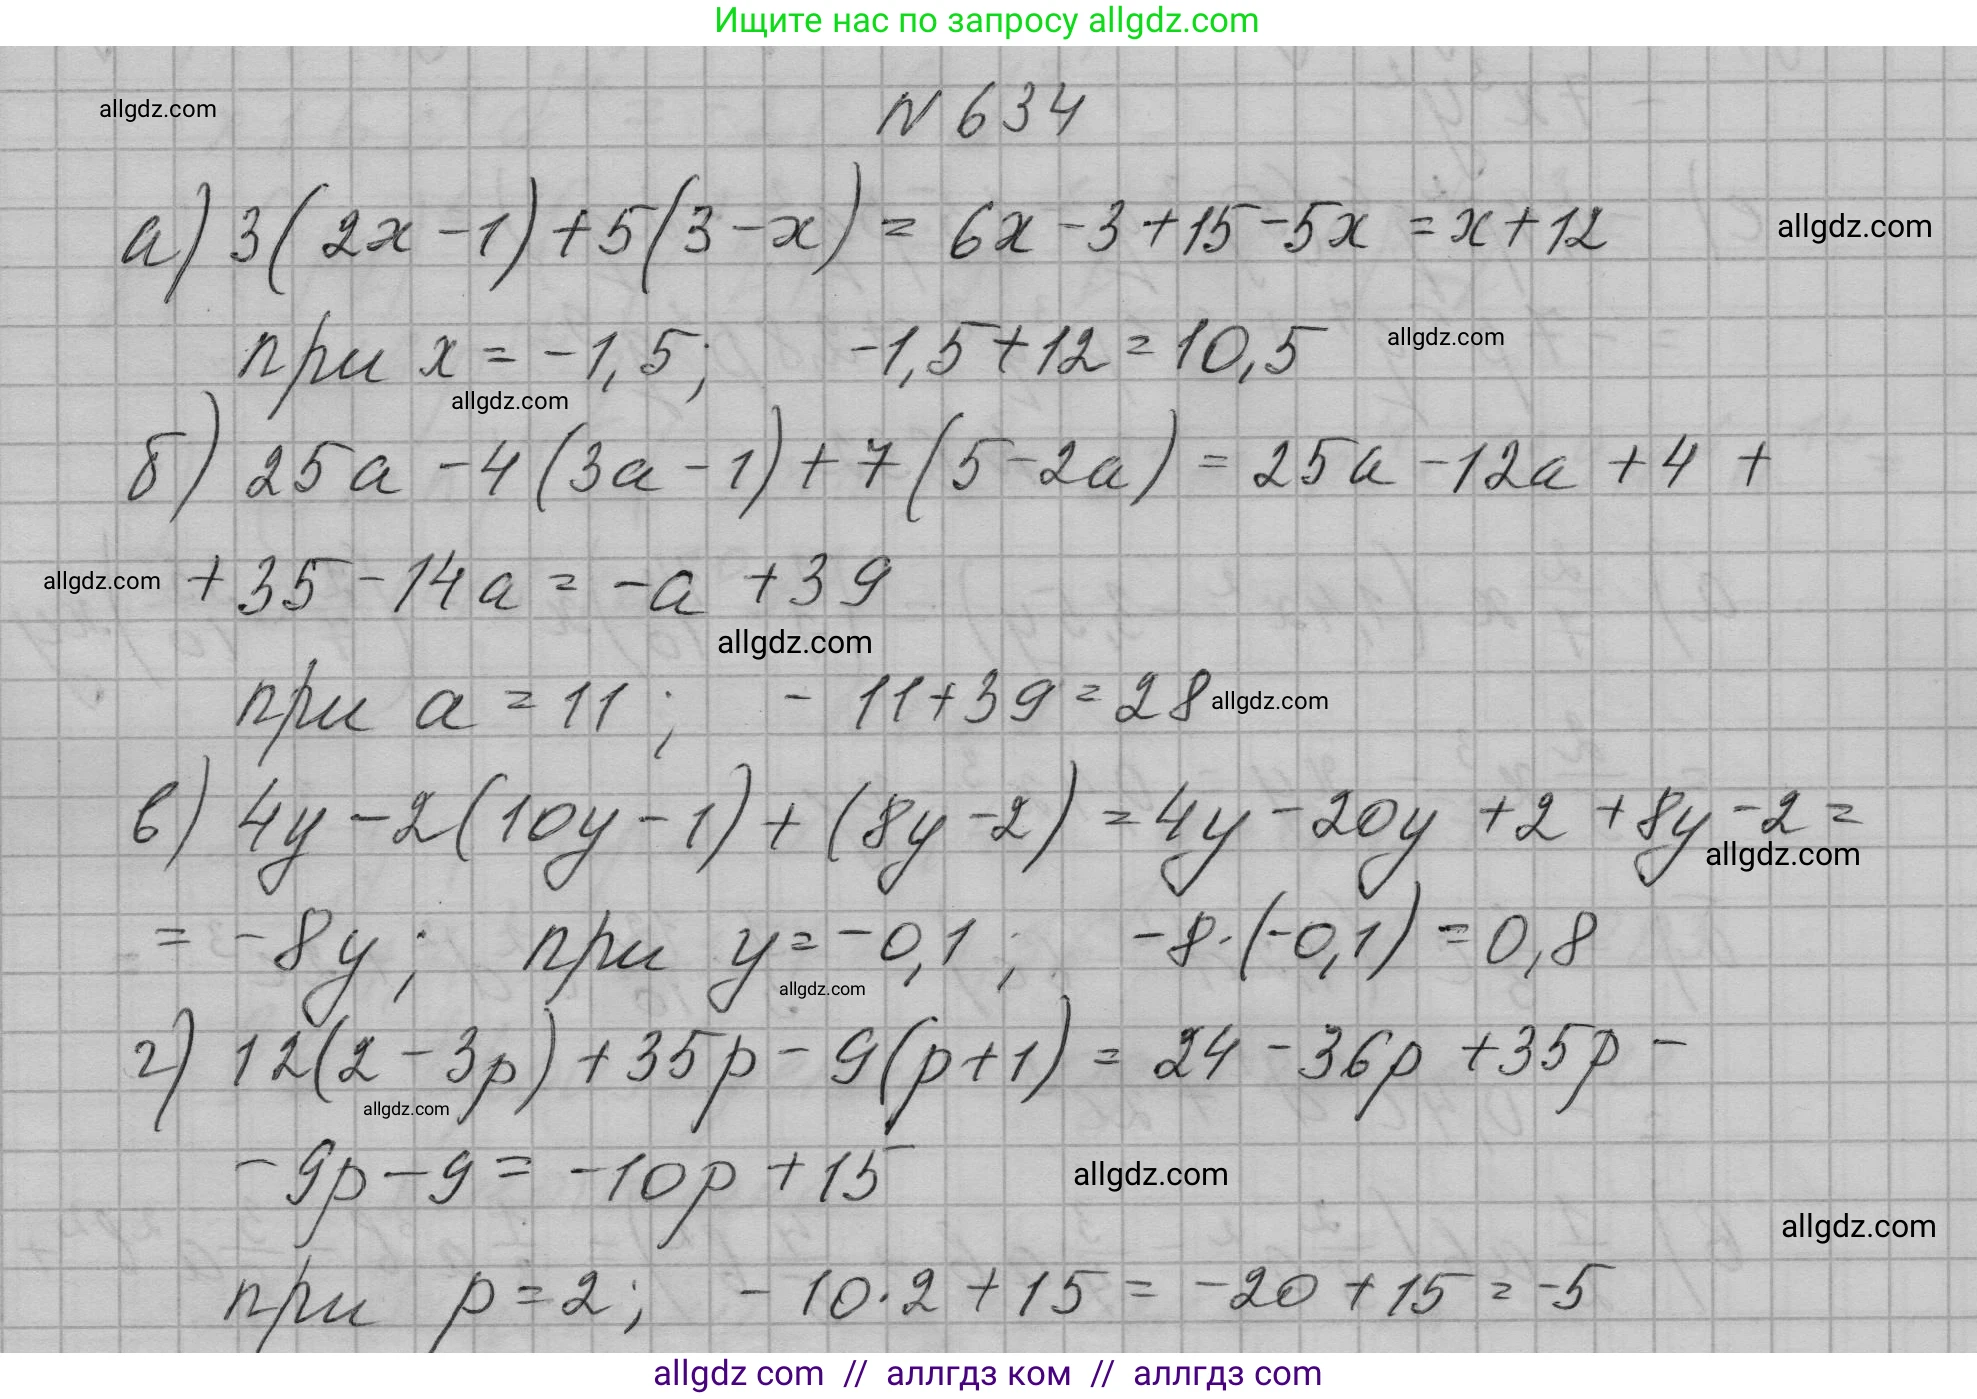 Ищите нас по запросу allgdz.com
N 634
allgdz.com
а) 3(2x-1)+5(3-x) = 6x-3+15-5x = x+12
allgdz.com
при x = -1,5; -1,5+12=10,5
allgdz.com
allgdz.com
б) 25a-4(3a-1)+7(5-2a) = 25a-12a+4+
allgdz.com
+35-14a = -a+39
allgdz.com
при a = 11; -11+39=28
allgdz.com
в) 4y-2(10y-1)+(8y-2) = 4y-20y+2+8y-2 =
allgdz.com
= -8y; при y=-0,1; -8·(-0,1) = 0,8
allgdz.com
г) 12(2-3p)+35p-9(p+1) = 24-36p+35p-
allgdz.com
-9p-9 = -10p+15
allgdz.com
allgdz.com
при p=2; -10·2+15 = -20+15 = -5
allgdz com // аллгдз ком // аллгдз com